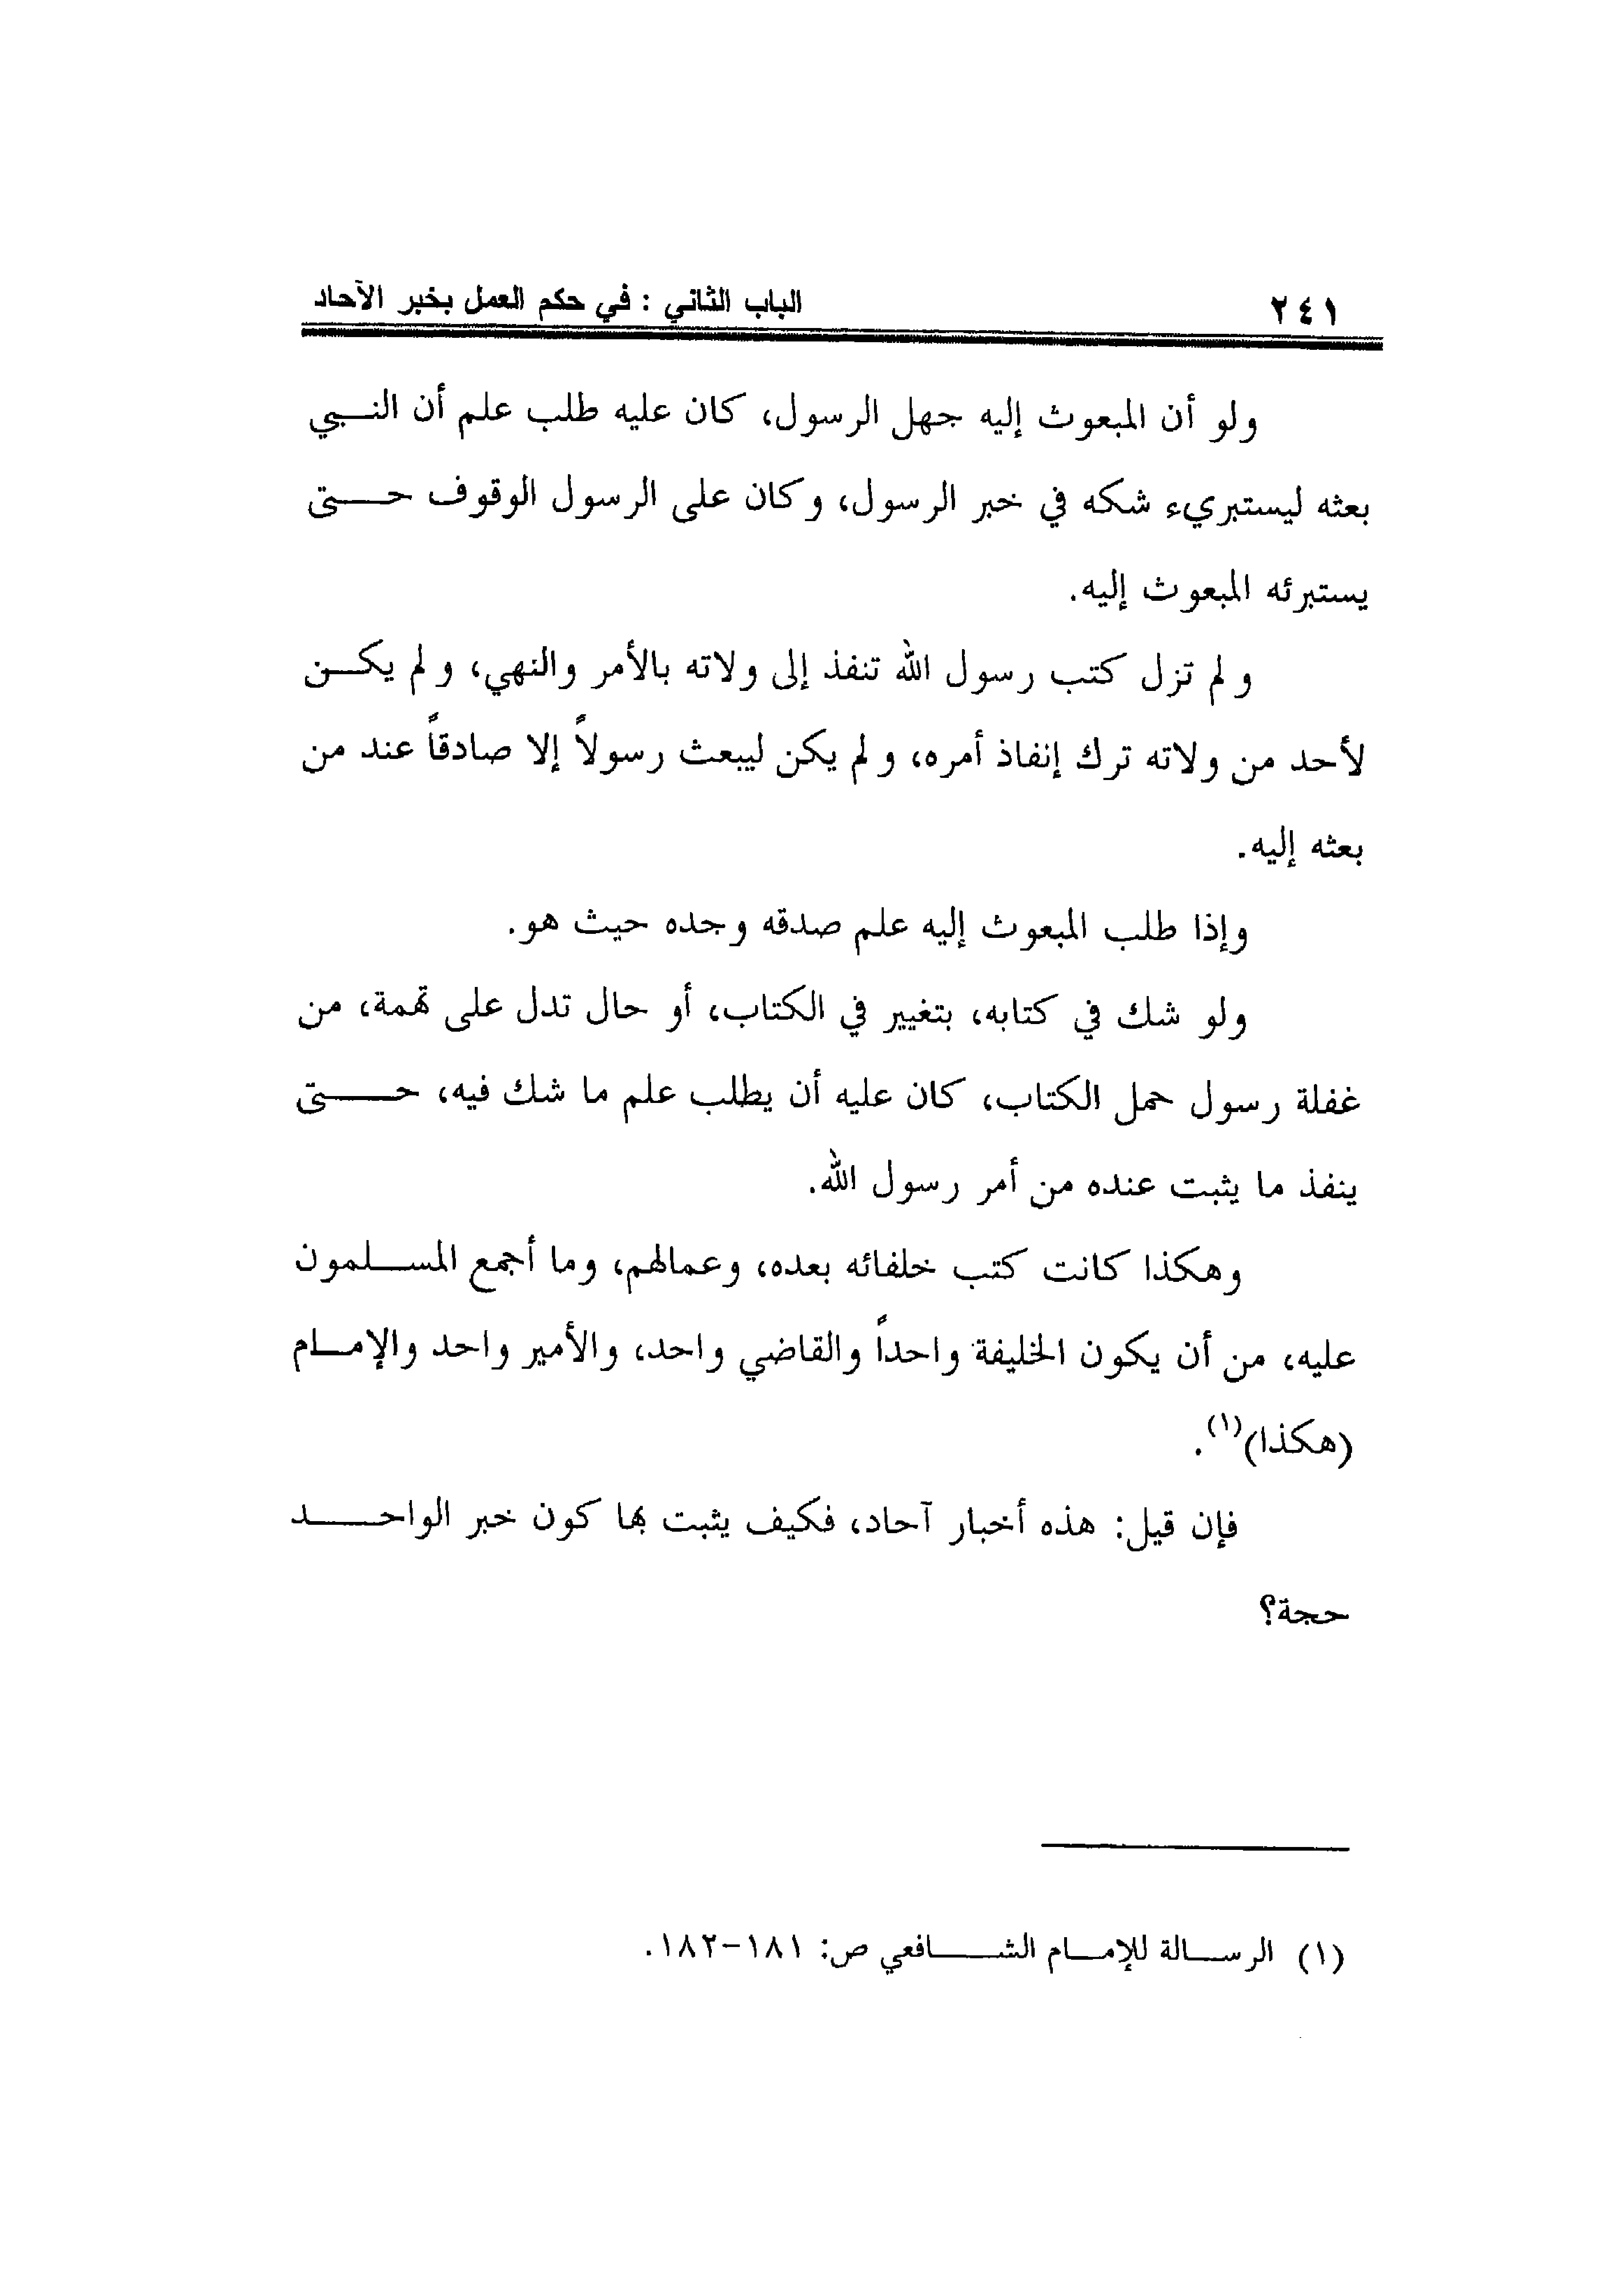 ٢٤١ الباب الثاني : في حكم العمل بخبر الآحاد
ولو أن المبعوث إليه جهل الرسول، كان عليه طلب علم أن النبي
بعثه ليستبريء شكه في خبر الرسول، وكان على الرسول الوقوف حتى
يستبرئه المبعوث إليه.
ولم تزل كتب رسول الله تنفذ إلى ولاته بالأمر والنهي، ولم يكن
لأحد من ولاته ترك إنفاذ أمره، ولم يكن ليبعث رسولاً إلا صادقاً عند من
بعثه إليه.
وإذا طلب المبعوث إليه علم صدقه وجده حيث هو.
ولو شك في كتابه، بتغيير في الكتاب، أو حال تدل على تهمة، من
غفلة رسول حمل الكتاب، كان عليه أن يطلب علم ما شك فيه، حتى
ينفذ ما يثبت عنده من أمر رسول الله.
وهكذا كانت كتب خلفائه بعده، وعمالهم، وما أجمع المسلمون
عليه، من أن يكون الخليفة واحداً والقاضي واحد، والأمير واحد والإمام
(هكذا)(١).
فإن قيل: هذه أخبار آحاد، فكيف يثبت بها كون خبر الواحد
حجة؟
(١) الرسالة للإمام الشافعي ص: ١٨١-١٨٢.